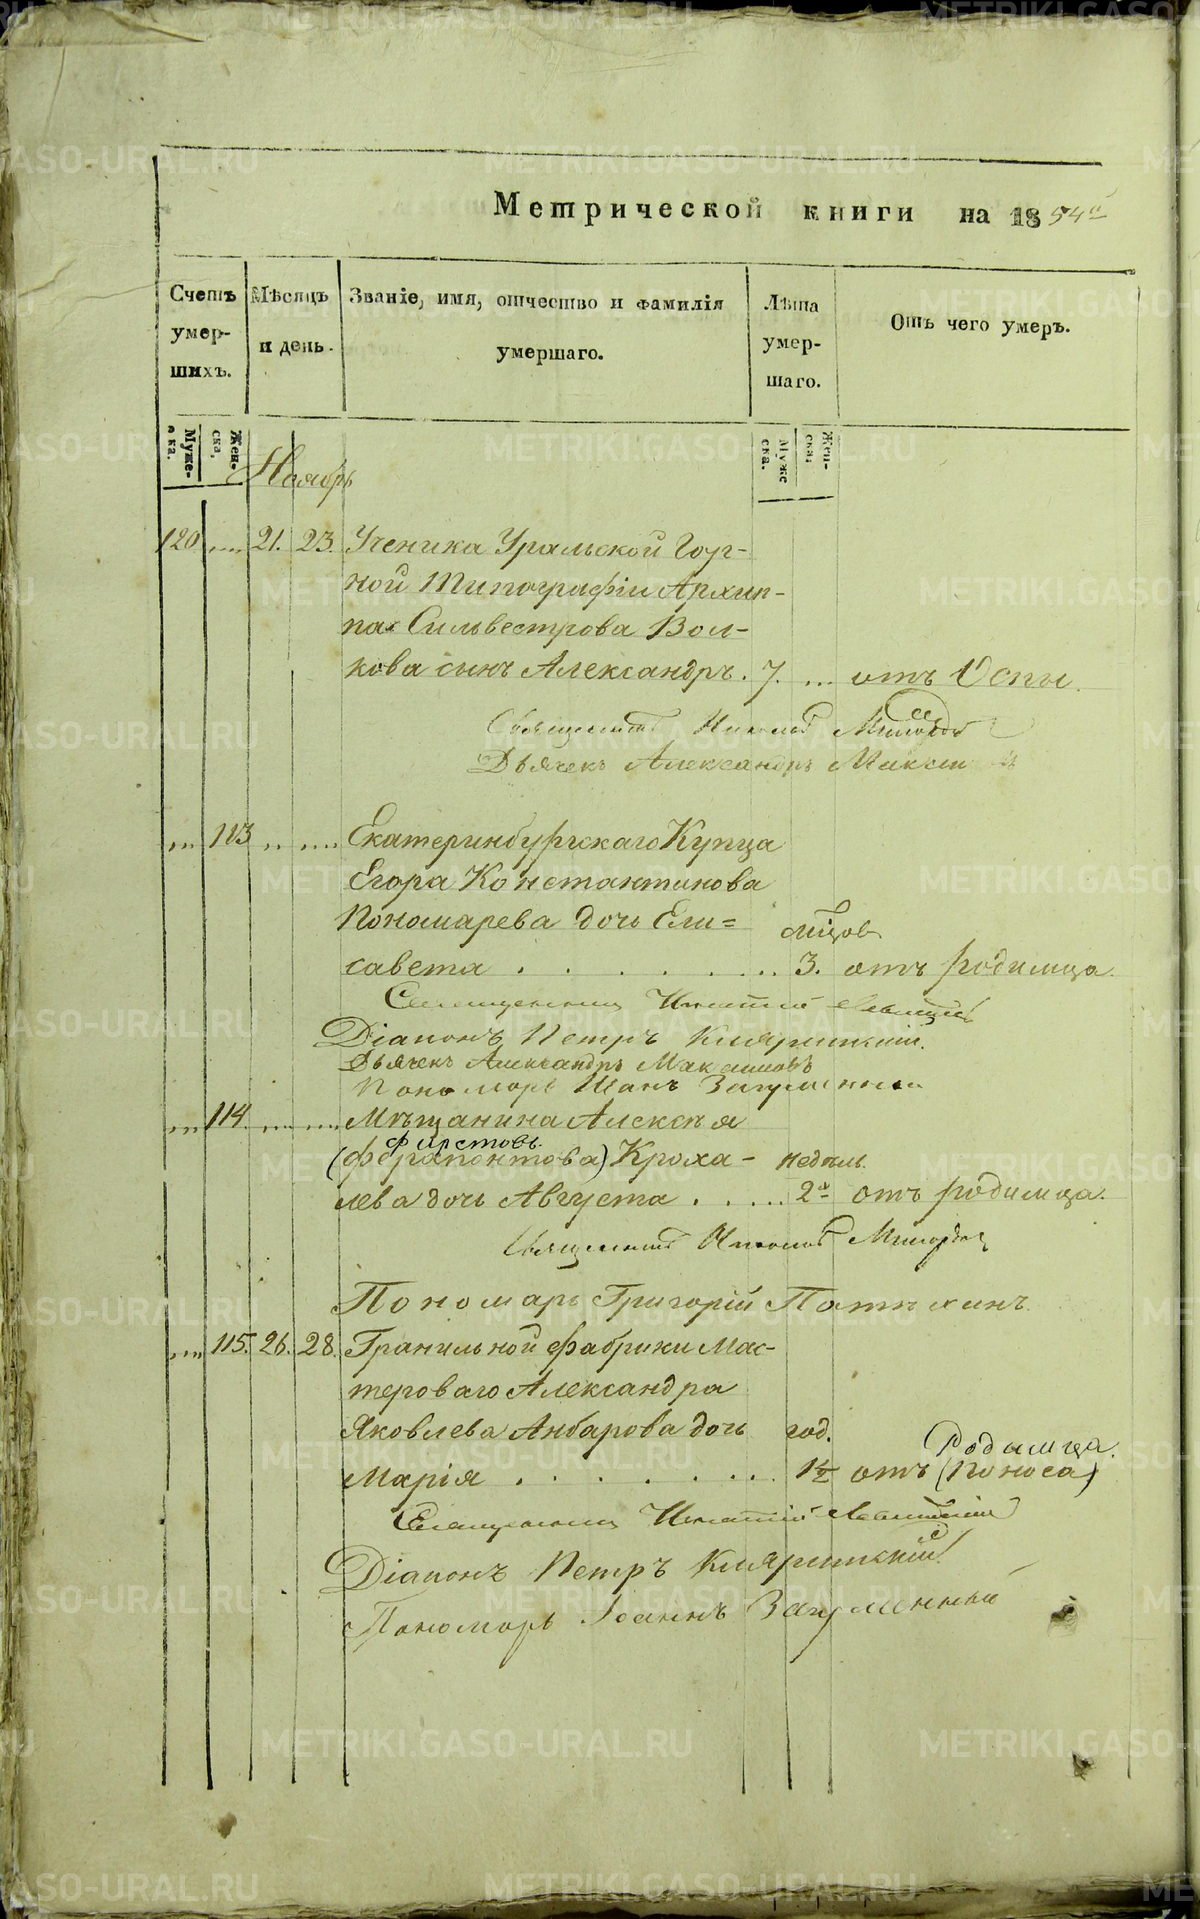 Метрической книги на 1854й
Счетъ умер-шихъ.
Мѣсяцъ и день.
Званіе, имя, отчество и фамилія умершаго.
Лѣта умер-шаго.
Отъ чего умеръ.
Муже-ска.
Жен-ска.
Муже-ска.
Жен-ска.
Ноябрь
120 .... 21. 23. Ученика Уральской Гор-
ной Типографіи Архип-
па Сильвестрова Вол-
кова сынъ Александръ. 7. ... отъ Оспы.
Священникъ Николай
Дьячекъ Александръ
... 113 .. .... Екатеринбургскаго Купца
Егора Константинова
Пономарева дочь Ели=
мѣсцов
савета . . . . . . .. 3. отъ родимца.
Священникъ Игнатій
Діаконъ Петръ
Дьячекъ Александръ Максимовъ
Пономарь Иванъ
... 114. .... .... Мѣщанина Алексѣя
Фирстовъ.
(Ферапонтова) Кроха- недѣль.
лева дочь Августа . . . .. 2х отъ родимца.
Священникъ Николай
Пономарь Григорій
.... 115. 26. 28. Гранильной фабрики Мас-
тероваго Александра
Яковлева Анбарова дочь год.
Родимца.
Марія . . . . . . .. 1½ отъ (поноса)
Священникъ Игнатій
Діаконъ Петръ
Пономарь Іоаннъ
METRIKI.GASO-URAL.RU